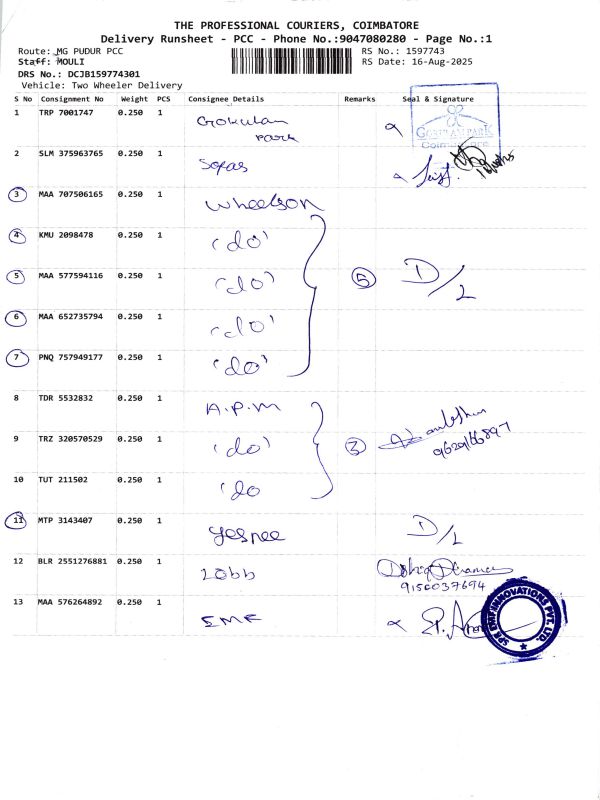 THE PROFESSIONAL COURIERS, COIMBATORE
Delivery Runsheet - PCC - Phone No.:9047080280 - Page No.:1
Route: MG PUDUR PCC RS No.: 1597743
Staff: MOULI RS Date: 16-Aug-2025
DRS No.: DCJB159774301
Vehicle: Two Wheeler Delivery
S No Consignment No Weight PCS Consignee Details Remarks Seal & Signature
1 TRP 7001747 0.250 1 Gokulan Park
GOKULAM PARK
Coimbatore
2 SLM 375963765 0.250 1 Sofas
3 MAA 707506165 0.250 1 Wheelson
4 KMU 2098478 0.250 1 'do'
5 MAA 577594116 0.250 1 'do' 5 D/L
6 MAA 652735794 0.250 1 'do'
7 PNQ 757949177 0.250 1 'do'
8 TDR 5532832 0.250 1 A.P.M
9 TRZ 320570529 0.250 1 'do' 3 9629166897
10 TUT 211502 0.250 1 'do
11 MTP 3143407 0.250 1 Yespee D/L
12 BLR 2551276881 0.250 1 Lobb
9150037694
13 MAA 576264892 0.250 1 EMF
SPK EMF INNOVATIONS PVT. LTD.